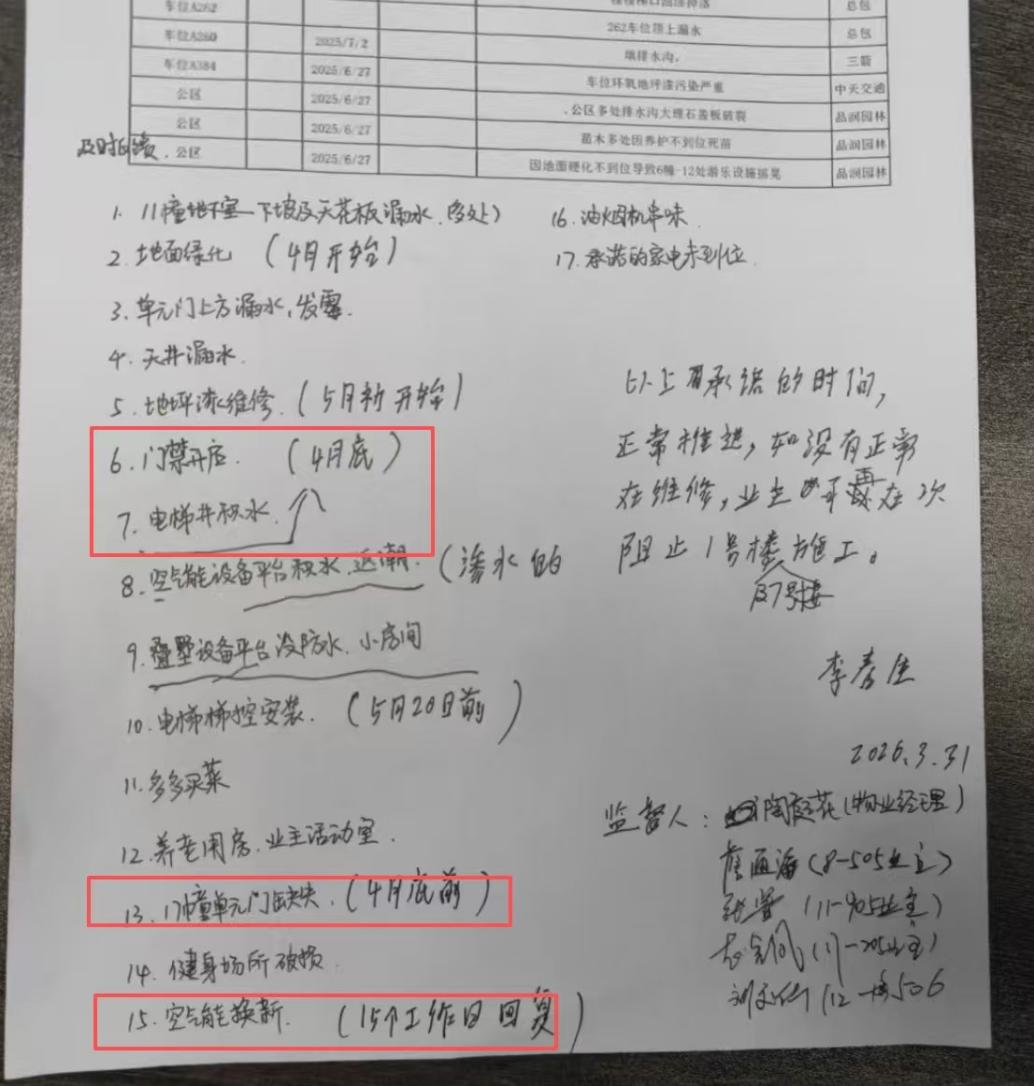 车位A262 总包
车位A260 2025/7/2 262车位顶上漏水 总包
车位A384 2025/6/27 填排水沟， 三箭
公区 2025/6/27 车位环氧地坪漆污染严重 中天交通
公区 2025/6/27 .公区多处排水沟大理石盖板破裂 品润园林
公区 2025/6/27 苗木多处因养护不到位死苗 品润园林
因地面硬化不到位导致6幢-12处游乐设施摇晃 品润园林
及时
1. 11幢地下室一下坡及天花板漏水（多处）
2. 地面绿化（4月开始）
3. 单元门上方漏水、发霉.
4. 天井漏水.
5. 地坪漆维修.（5月新开始）
6. 门禁开启.（4月底）
7. 电梯井积水.
8. 空气能设备平台积水、返潮.（渗水的
9. 叠墅设备平台没防水、小房间
10. 电梯梯控安装.（5月20日前）
11. 多多买菜
12. 养老用房、业主活动室.
13. 17幢单元门缺失.（4月底前）
14. 健身场所破损.
15. 空气能换新.（15个工作日回复）
16. 油烟机串味.
17. 承诺的家电未到位.
以上承诺的时间，
正常推进，如没有正常
在维修，业主可再在次
阻止1号楼施工。
及7号楼
李春生
2026.3.31
监督人：陶庭花（物业经理）
（8-505业主）
（11-905业主）
（17-205业主）
12-506